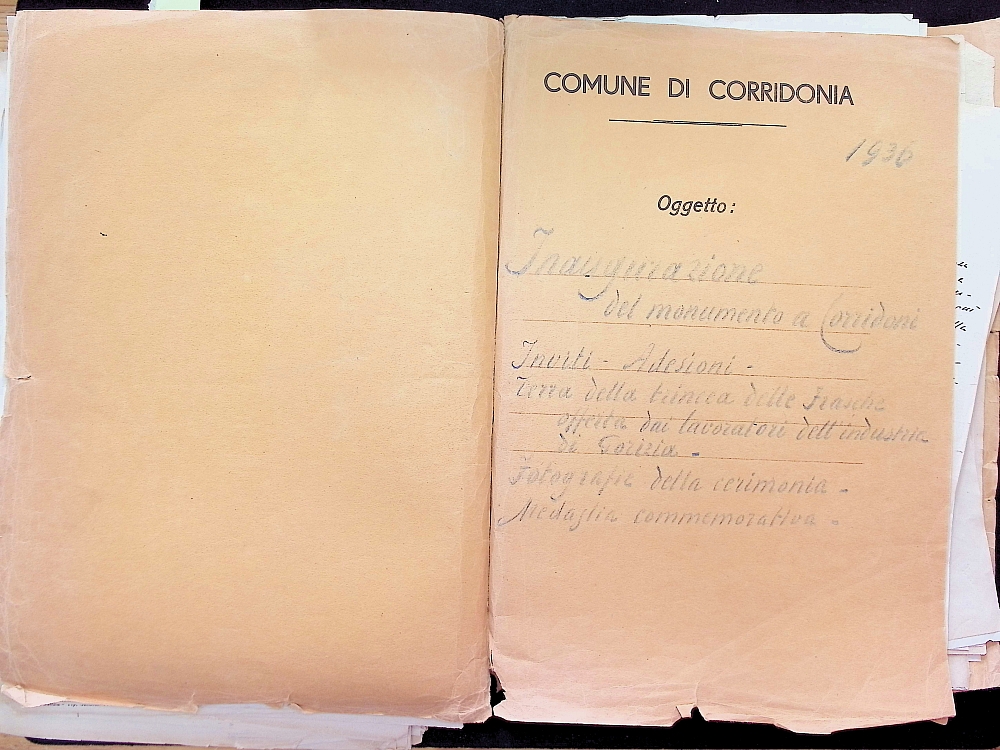 COMUNE DI CORRIDONIA
1936
Oggetto:
Inaugurazione
del monumento a Corridoni
Inviti - Adesioni -
Terra della trincea delle Frasche
offerta dai lavoratori dell'industria
di Gorizia -
Fotografie della cerimonia -
Medaglia commemorativa -